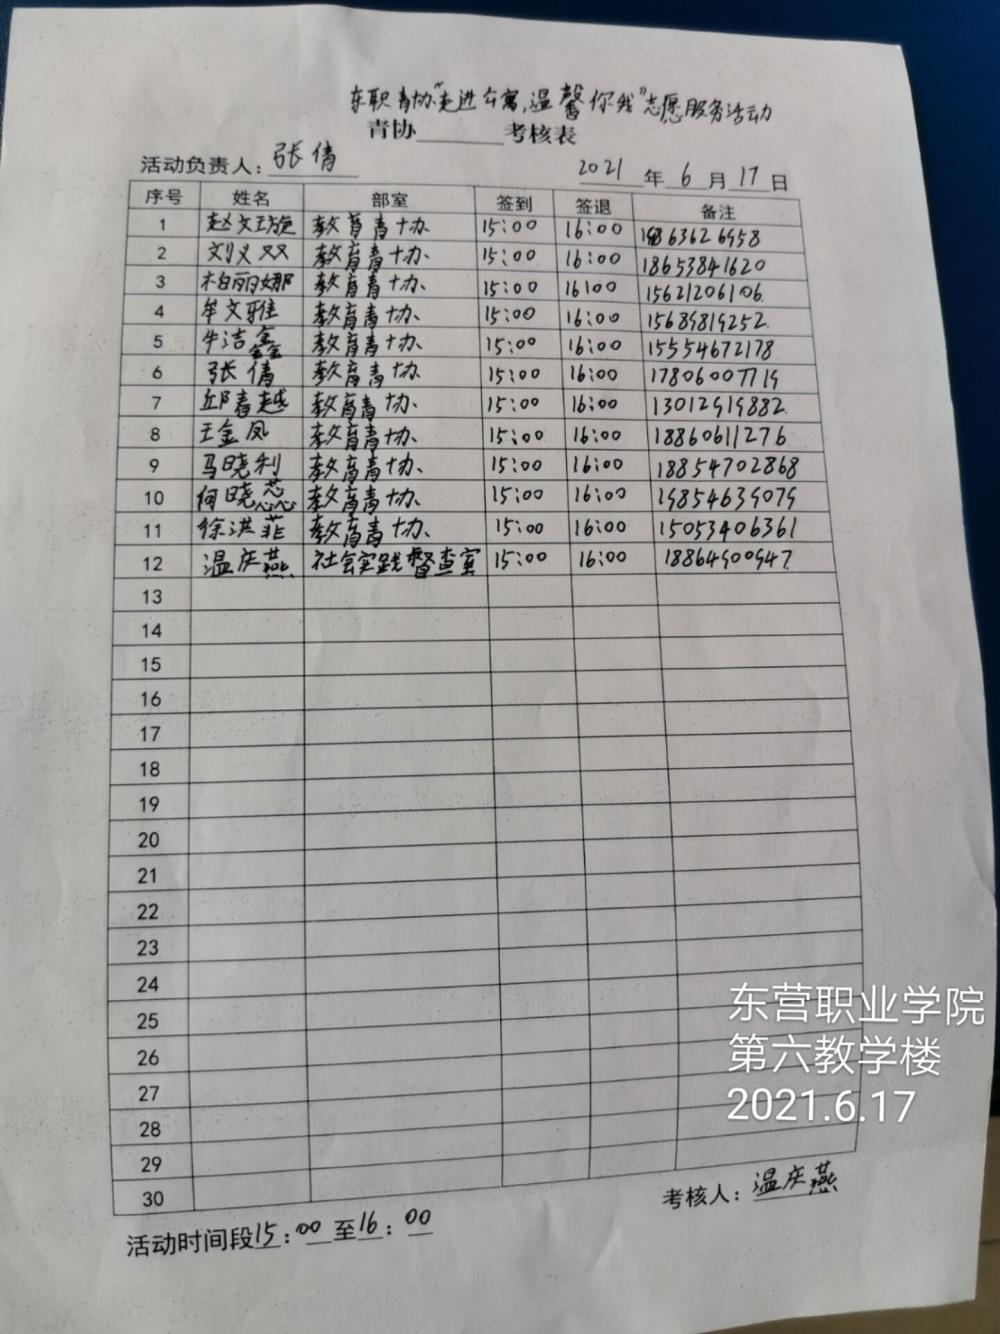 东职青协"走进公寓,温馨你我"志愿服务活动
青协______考核表
活动负责人: 张倩 2021 年 6 月 17 日
序号 姓名 部室 签到 签退 备注
1 赵文璇 教育青协 15:00 16:00 19863626958
2 刘义双 教育青协 15:00 16:00 18653841620
3 柏丽娜 教育青协 15:00 16:00 15621206106
4 牟文雅 教育青协 15:00 16:00 15689819252
5 牛洁鑫 教育青协 15:00 16:00 15554672178
6 张倩 教育青协 15:00 16:00 17806007719
7 邱春越 教育青协 15:00 16:00 13012919882
8 王金凤 教育青协 15:00 16:00 18860611276
9 马晓利 教育青协 15:00 16:00 18854702868
10 何晓蕊 教育青协 15:00 16:00 19854639079
11 徐洪菲 教育青协 15:00 16:00 15053406361
12 温庆燕 社会实践督查室 15:00 16:00 18864500947
13
14
15
16
17
18
19
20
21
22
23
24
25
26
27
28
29
30
考核人: 温庆燕
活动时间段15:00至16:00
东营职业学院
第六教学楼
2021.6.17